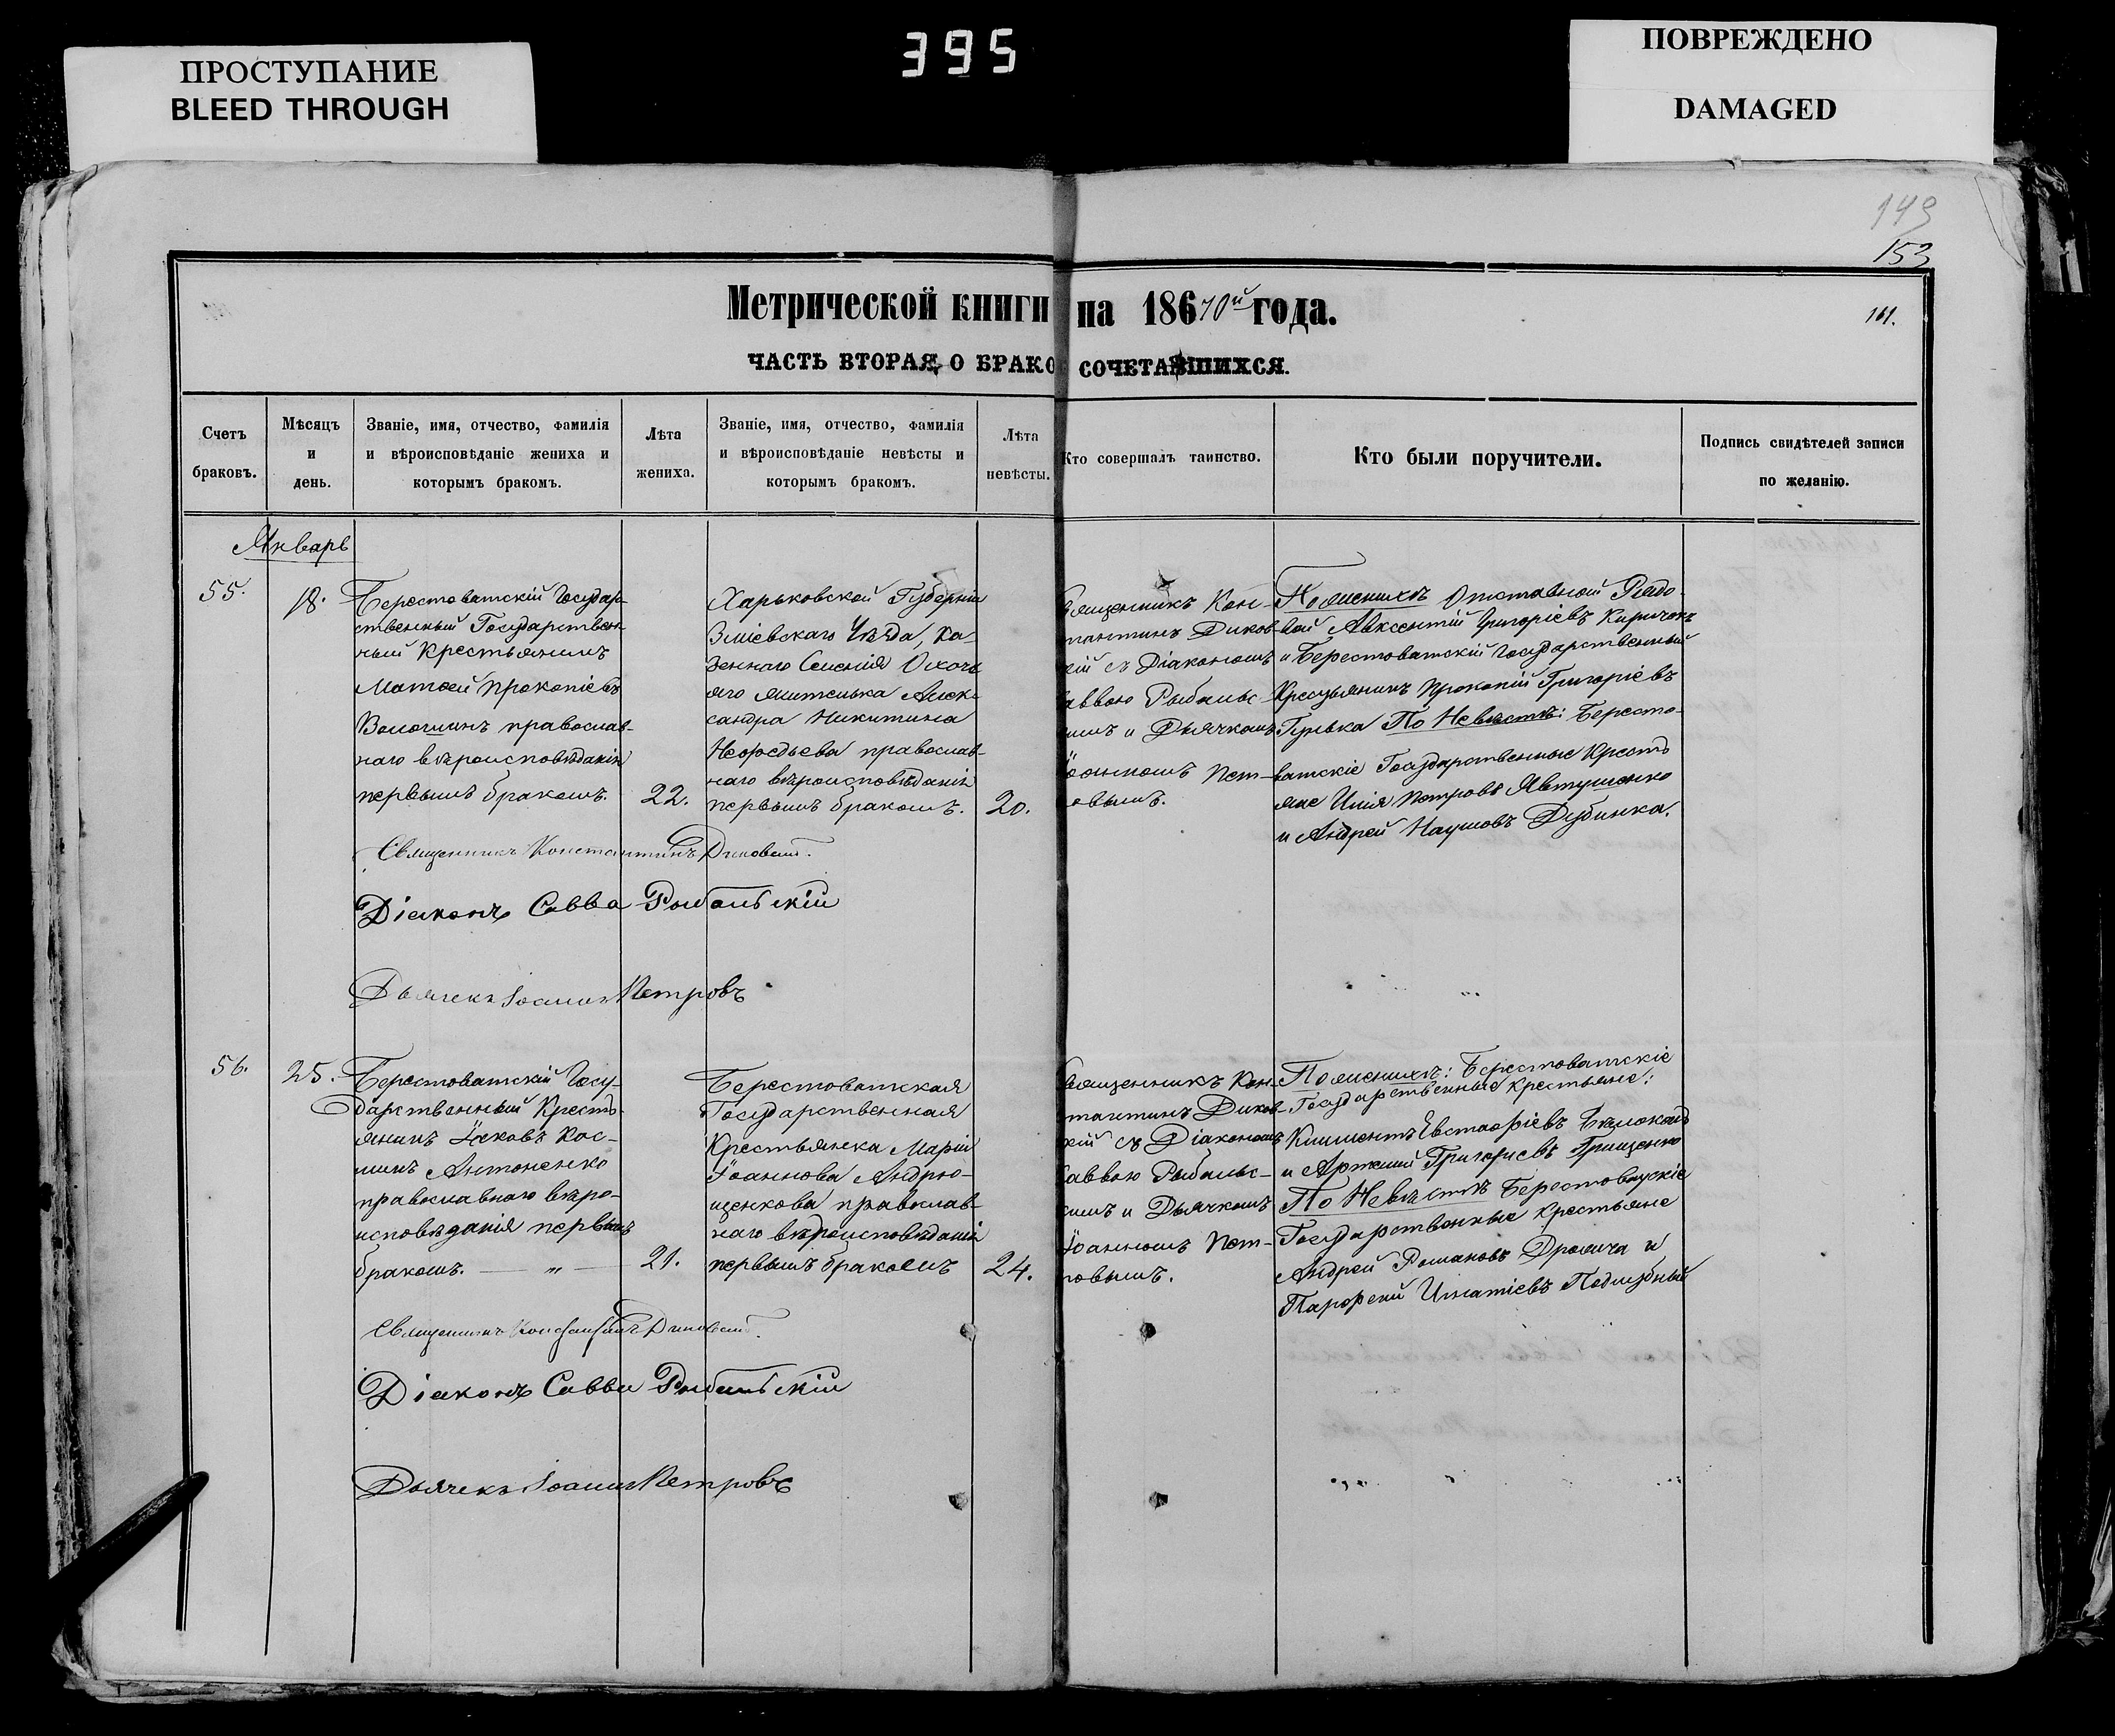 395
ПРОСТУПАНИЕ
BLEED THROUGH
ПОВРЕЖДЕНО
DAMAGED
149
153
Метрической книги на 18670й года.
161.
ЧАСТЬ ВТОРАЯ, О БРАКОСОЧЕТАВШИХСЯ.
Счетъ
браковъ.
Мѣсяцъ
и
день.
Званіе, имя, отчество, фамилія
и вѣроисповѣданіе жениха и
которымъ бракомъ.
Лѣта
жениха.
Званіе, имя, отчество, фамилія
и вѣроисповѣданіе невѣсты и
которымъ бракомъ.
Лѣта
невѣсты.
Кто совершалъ таинство.
Кто были поручители.
Подпись свидѣтелей записи
по желанію.
Январь
55.
18.
Берестоватскій Государ-
ственный Государствен
ный Крестьянинъ
Матѳей Прокопіевъ
Волошинъ православ-
наго вѣроисповѣданія
первымъ бракомъ.
22.
Харьковской Губерніи
Зміевскаго Уѣзда, Ка-
зеннаго Селенія Охоча
яго жителька Алек-
сандра Никитина
православ-
наго вѣроисповѣданія
первымъ бракомъ.
20.
вященникъ Кон-
тантинъ Диков-
кій съ Діакономъ
аввою Рыбальс-
имъ и Дьячкомъ
Іоанномъ Пет-
овымъ.
По женихѣ Отставной Рядо-
вой Авксентій Григоріевъ Киричокъ
и Берестоватскій Государственный
Крестьянинъ Прокопій Григоріевъ
Гулька По Невѣстѣ: Бересто-
ватскіе Государственные Кресть
яне Илія Петровъ Явтушенко
и Андрей Наумовъ Дубинка.
Священникъ Константинъ Диковскій.
Діаконъ Савва Рыбальскій
Дьячекъ Іоаннъ Петровъ
56.
25.
Берестоватскій Госу-
дарственный Кресть-
янинъ Іаковъ Кос-
минъ Антоненко
православнаго вѣро-
исповѣданія первымъ
бракомъ. — „ —
21.
Берестоватская
Государственная
Крестьянка Марія
Іоаннова Андрю-
щенкова православ-
наго вѣроисповѣданія
первымъ бракомъ
24.
вященникъ Кон-
тантинъ Диков-
кій съ Діакономъ
аввою Рыбальс-
имъ и Дьячкомъ
Іоанномъ Пет-
ровымъ.
По женихѣ: Берестоватскіе
Государственные Крестьяне:
Климентъ Евстафіевъ
и Артемій Григоріевъ Грищенко
По Невѣстѣ Берестоватскіе
Государственные Крестьяне
Андрей Романовъ и
Парфеній Игнатіевъ Поддубный
Священникъ Константинъ Диковскій.
Діаконъ Савва Рыбальскій
Дьячекъ Іоаннъ Петровъ